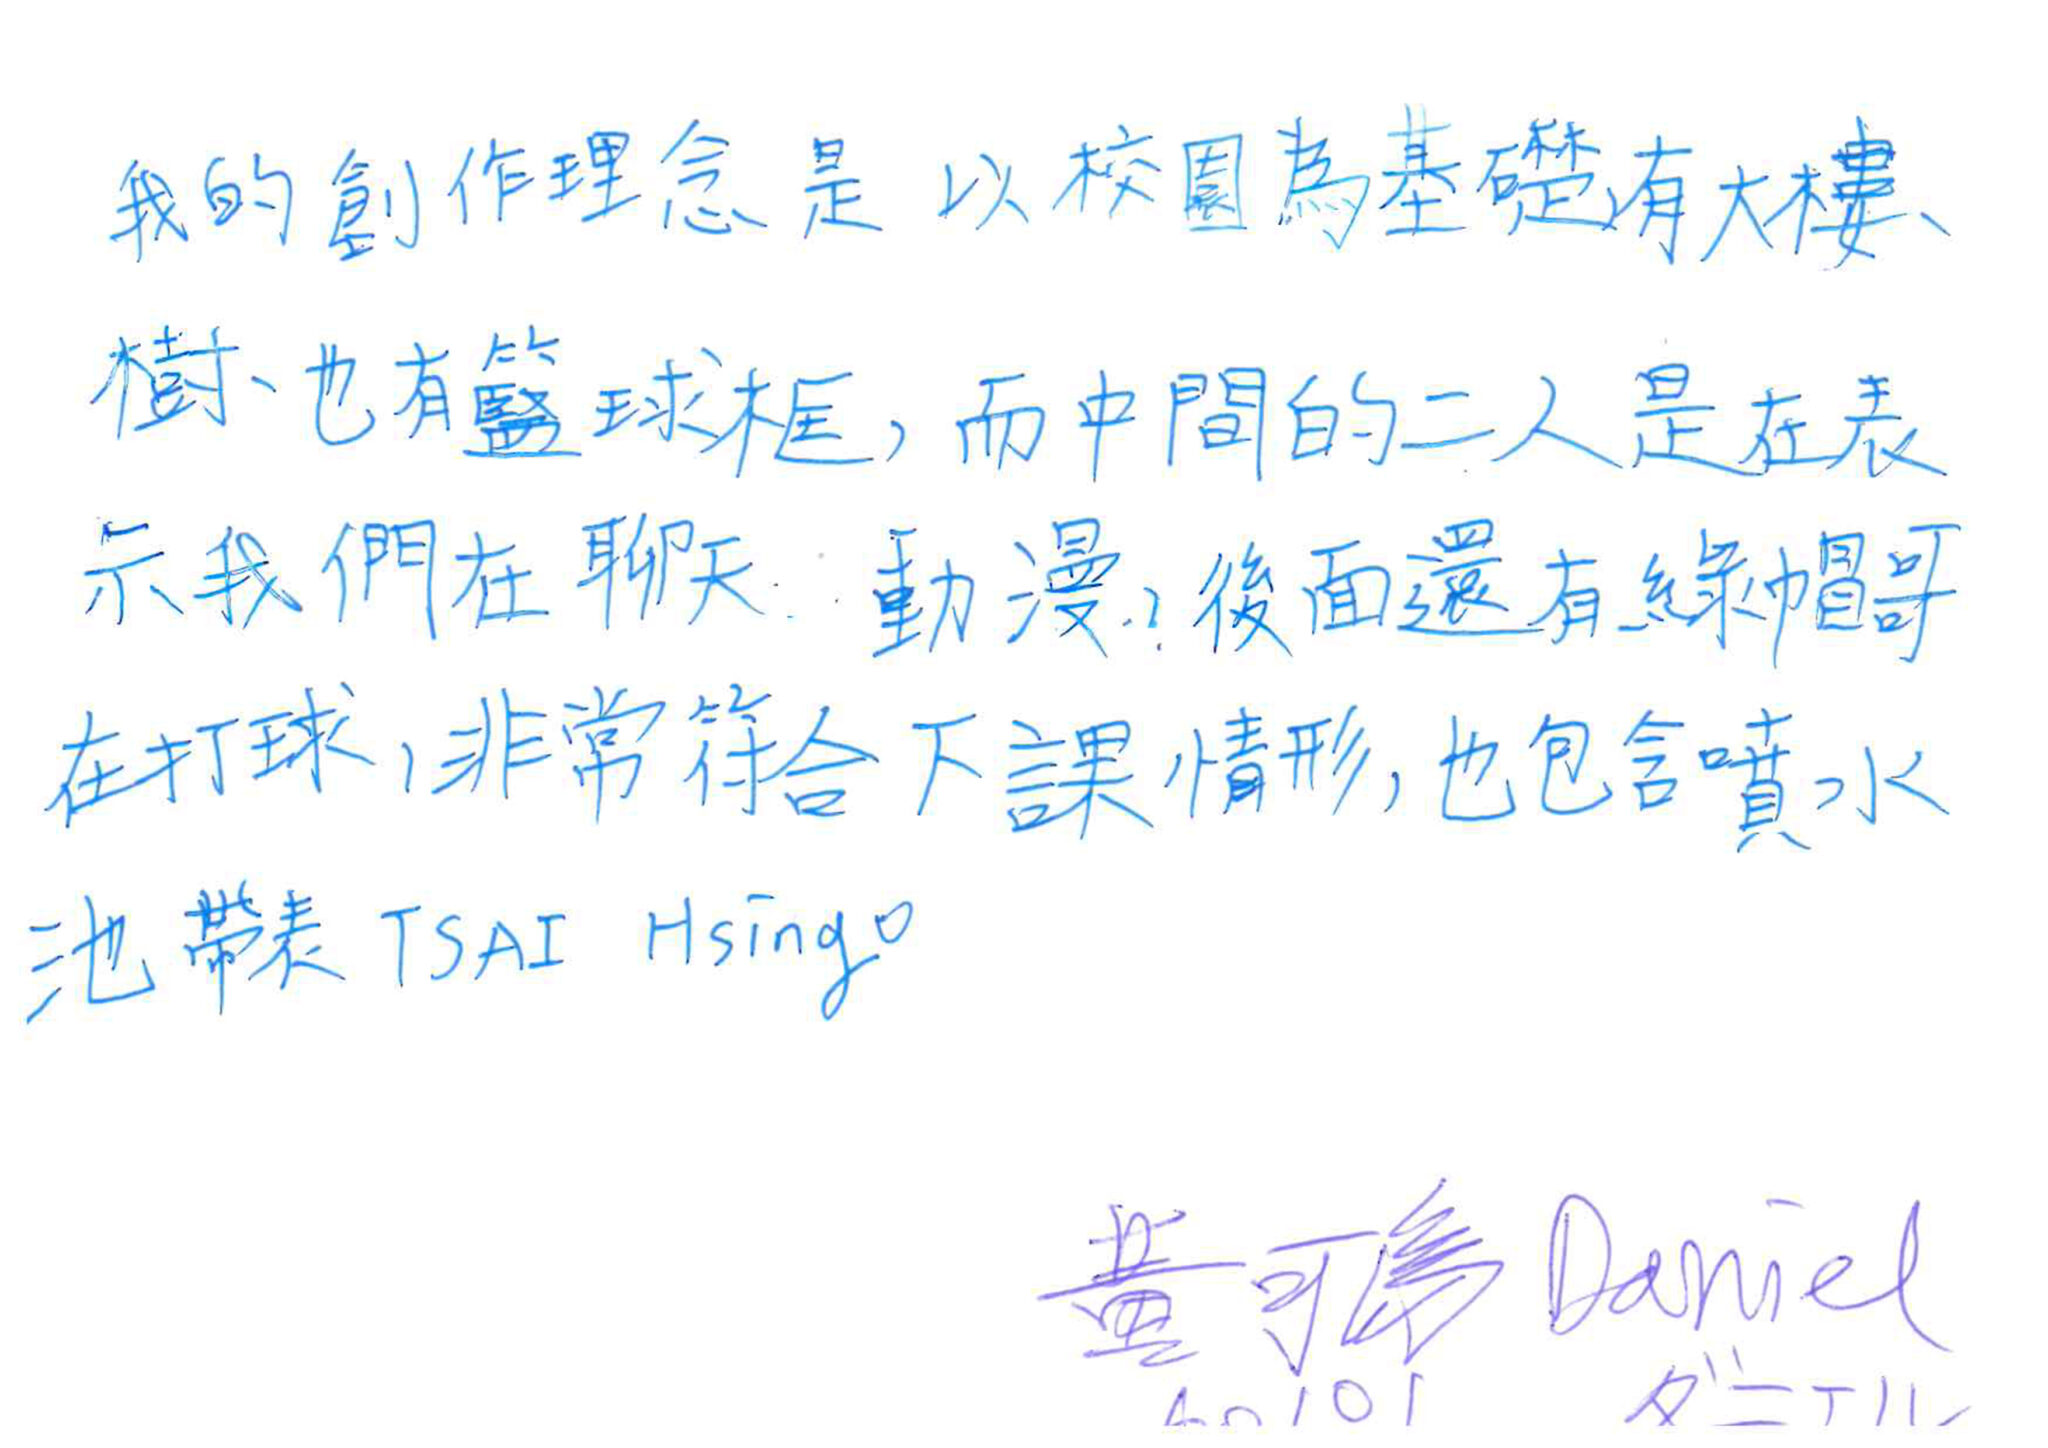 我的創作理念是以校園為基礎,有大樓、
樹、也有籃球框,而中間的二人是在表
示我們在聊天動漫,後面還有綠帽哥
在打球,非常符合下課情形,也包含噴水
池帶表 TSAI Hsing。
黃可為 Daniel
101 ダニエル